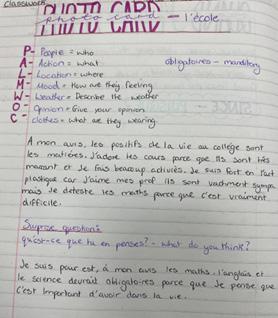 Classwork
PHOTO CARD
photo card - l'école
PHOTO CARD
P- People = who
A- Action = what
obligatoires - mandatory
L- Location = where
M- Mood = How are they feeling
W- Weather = Describe the weather
O- Opinion = Give your opinion
C- clothes = what are they wearing.
A mon avis, les positifs de la vie au collège sont
les matières. J'adore les cours parce que ils sont très
marrant et Je fais beaucoup activités. Je suis fort en l'art
plastique car J'aime mes prof ils sont vachment sympa
mais Je deteste les maths parce que c'est vraiment
difficile.
Suprise question:
qu'est-ce que tu en penses? - What do you think?
Je suis pour est, á mon avis les maths, l'anglais et
le science devrait obligatoires parce que Je pense que
C'est Important d'avoir dans la vie.